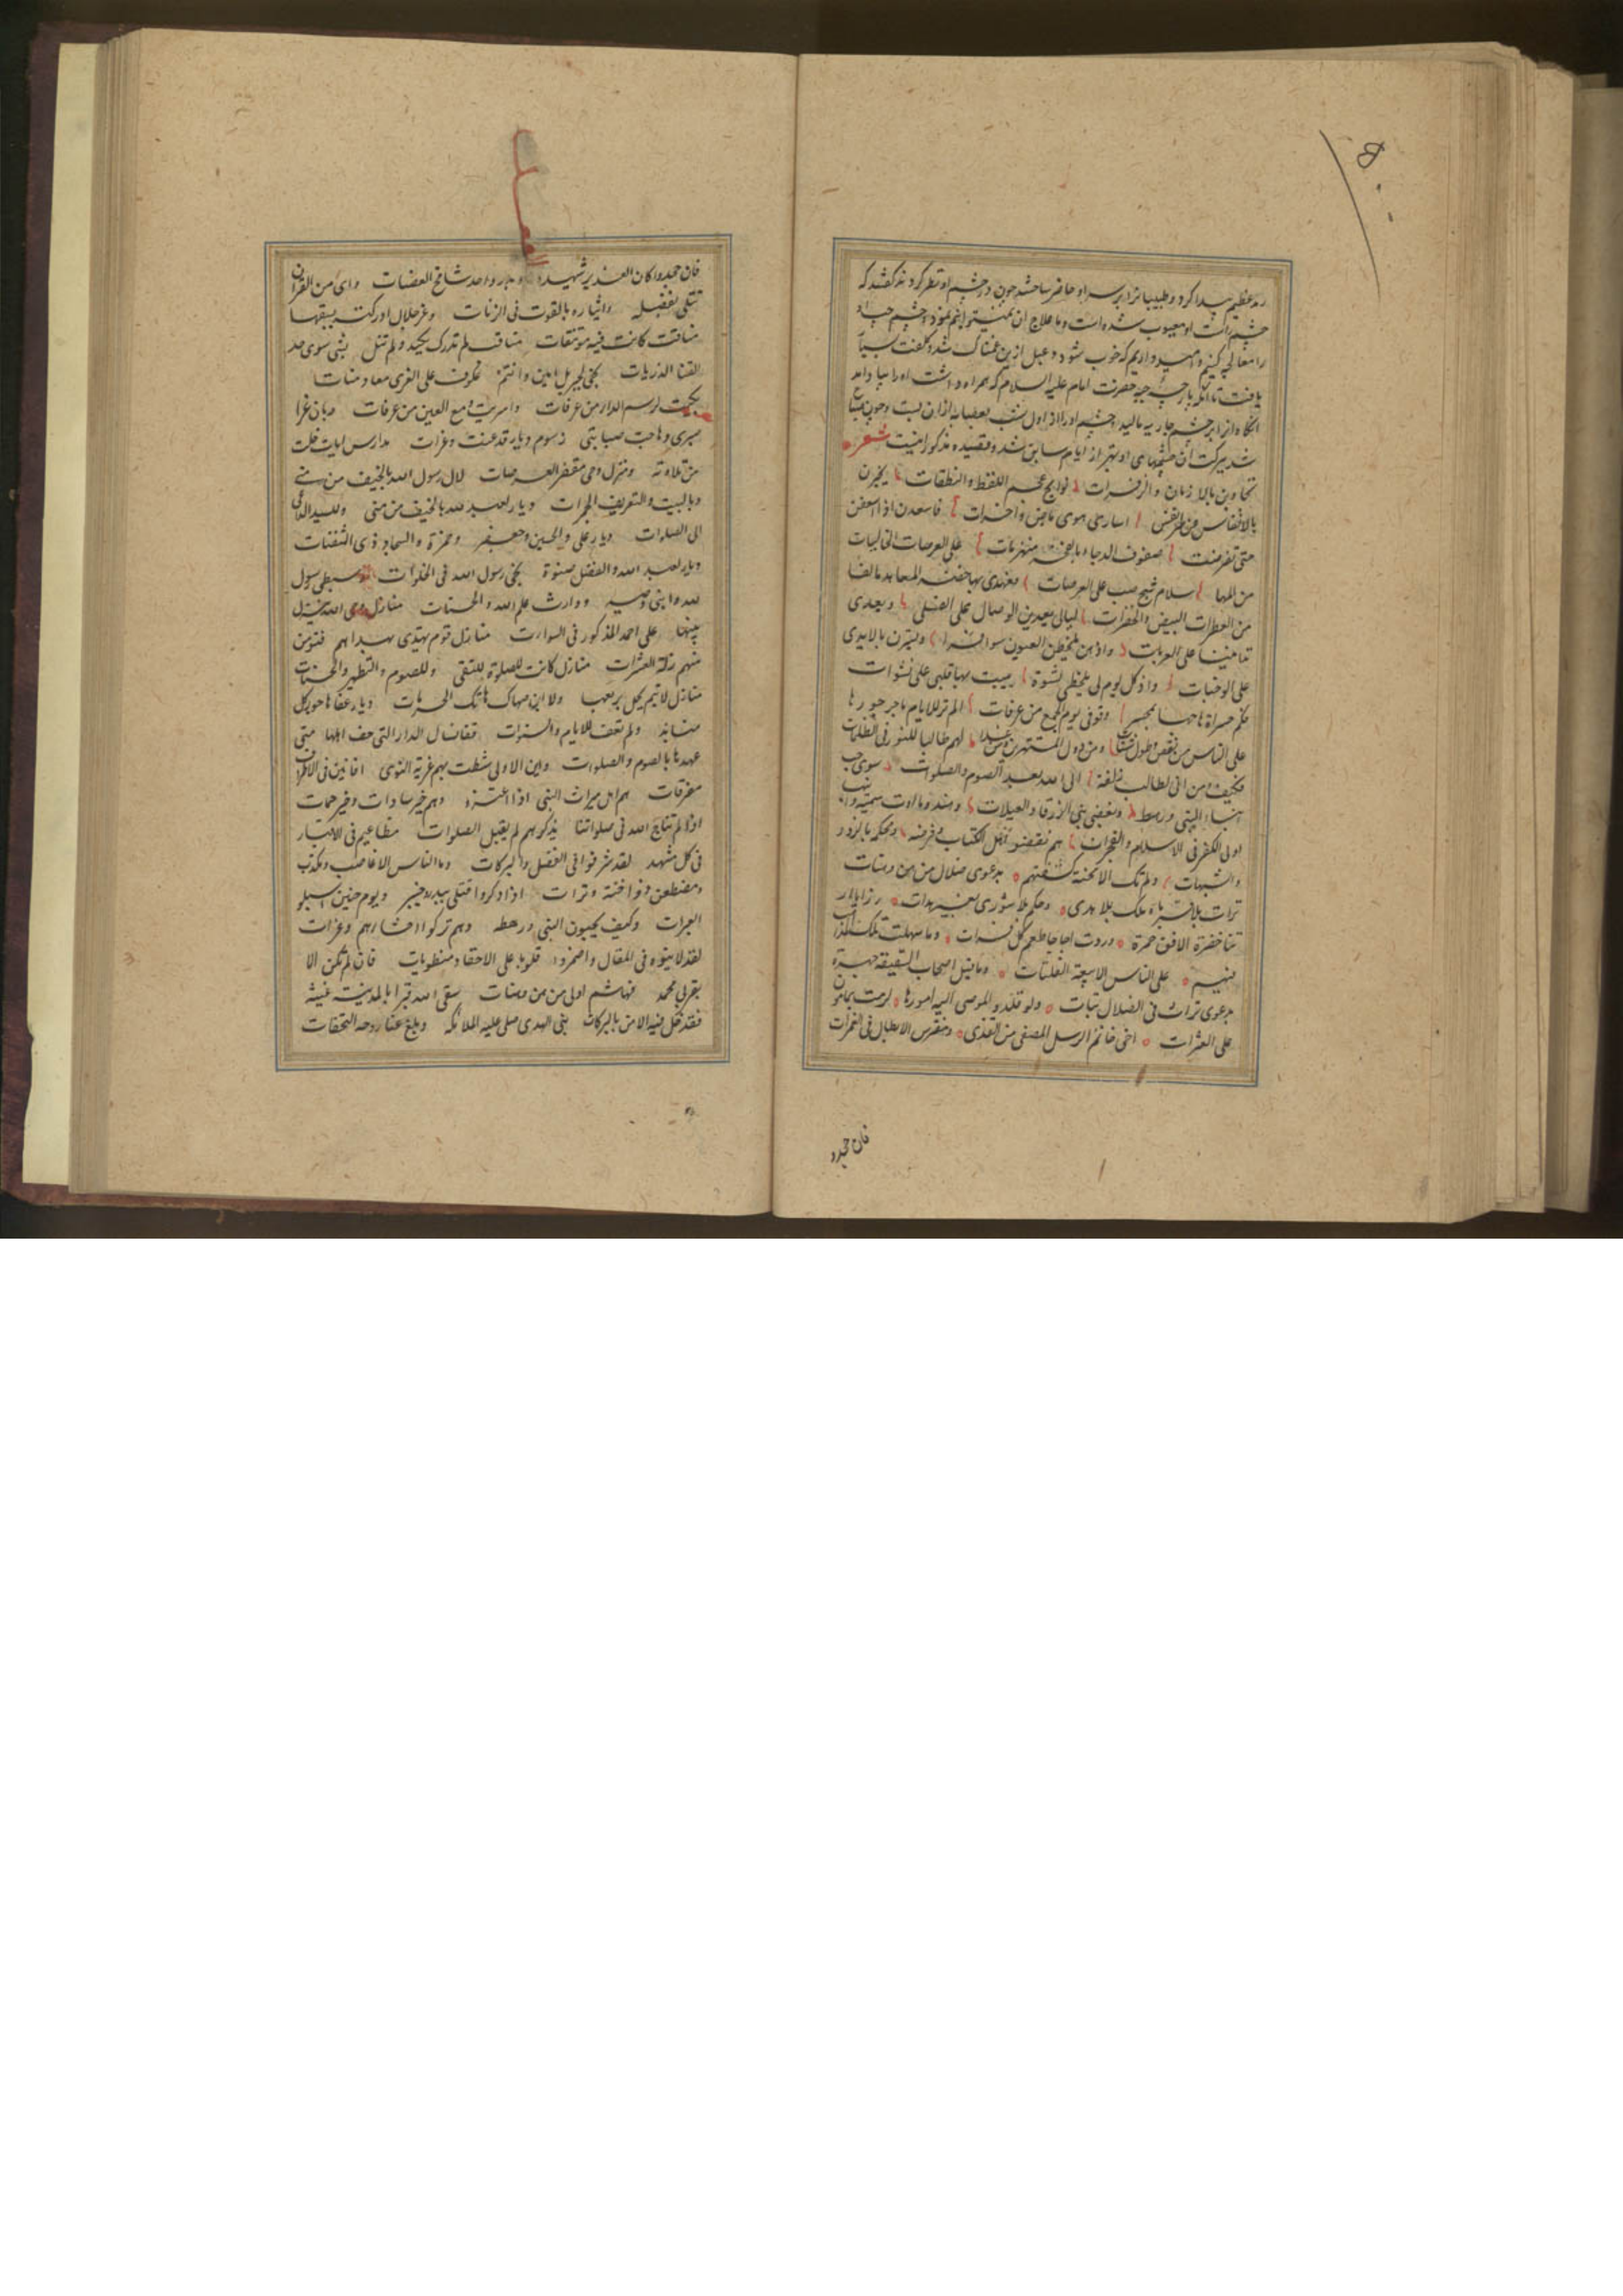 رمد عظیم پیدا کرد و طبیبانرا بر سر او حاضر ساختند چون در چشم او نظر کردند گفتند که
چشم راست او معیوب شده است و ما علاج آن نمیتوانیم نمود و چشم چپ او
را معالجه کنیم و امیدواریم که خوب شود دعبل ازین غمناک شد و کلفت بسیار
یافت تا آنکه پارچه جبه حضرت امام علیه السلام که همراه داشت او را بیاد آمد
آنگاه از ابر چشم جاریه مالید و چشم او را از اول شب بعصابه ازان بست و چون صباح
شد ببرکت آن چشمهای او بهتر از ایام سابق شد و قصیده مذکور اینست شعر
تجاوبن بالارنان والزفرات نوایح عجم اللفظ والنطقات یخبرن
بالانفاس عن سر انفس اساری هوی ماض و اخرات فاسعدن او اسعفن
حتی تقوضت صفوف الدجا بالفجر منهزمات علی العرصات الخالیات
من المها سلام شج صب علی العرصات فعهدی بها خضر المعاهد مالفا
من العطرات البیض والخفرات لیالی یعدین الوصال علی القلی و یعدی
تدانینا علی الغربات واذ هن یلحظن العیون سوافرا و یسترن بالایدی
علی الوجنات واذ کل یوم لی بلحظی نشوة یبیت بها قلبی علی نشوات
فکم حسرات هاجها بمحسر وقوفی یوم الجمع من عرفات الم تر للایام ما جر جورها
علی الناس من نقص و طول شتات و من دول المستهترین و من غدا بهم طالبا للنور فی الظلمات
فکیف و من انی لطالب زلفة الی الله بعد الصوم والصلوات سوی حب
ابناء النبی و رهطه و بغض بنی الزرقا والعبلات و هند و ما ادت سمیة و ابنها
اولی الکفر فی الاسلام والفجرات هم نقضوا عهد الکتاب و فرضه و محکمه بالزور
والشبهات و لم تک الا محنة کشفتهم بدعوی ضلال من هن و هنات
تراث بلا قربی و ملک بلا هدی و حکم بلا شوری بغیر هدات رزایا ار
تنا خضرة الافق حمرة و ردت اجاجا طعم کل فرات و ما سهلت تلک المذاهب
فیهم علی الناس الا بیعة الفلتات و ما قیل اصحاب السقیفة جهرة
بدعوی تراث فی الضلال نتات ولو قلدوا الموصی الیه امورها لزمت بمامون
علی العثرات اخی خاتم الرسل المصفی من القذی و مفترس الابطال فی الغمرات
فان جحدوا
فان جحدوا کان الغدیر شهیده و بدر و احد شامخ الهضبات و ای من القرآن
تتلی بفضله و ایثاره بالقوت فی اللزبات و عز خلال ادرکته بسبقها
مناقب کانت فیه مؤتنفات مناقب لم تدرک بکید و لم تنل بشی سوی حد
القنا الذربات نجی لجبریل امین و انتم عکوف علی العزی معا و منات
بکیت لرسم الدار من عرفات و اذریت دمع العین من عرفات و بان عرا
صبری و هاجت صبابتی رسوم دیار قد عفت وعرات مدارس آیات خلت
من تلاوة و منزل وحی مقفر العرصات لال رسول الله بالخیف من منی
و بالبیت والتعریف والجمرات دیار لعبد الله بالخیف من منی و للسید الداعی
الی الصلوات دیار علی والحسین و جعفر و حمزة والسجاد ذی الثفنات
دیار لعبد الله والفضل صنوه نجی رسول الله فی الخلوات و سبطی رسول
الله و ابنی وصیه و وارث علم الله والحسنات منازل وحی الله ینزل
بینها علی احمد المذکور فی السورات منازل قوم یهتدی بهداهم فتؤمن
منهم زلة العثرات منازل کانت للصلوة و للتقی و للصوم والتطهیر والحسنات
منازل لا تیم یحل بربعها ولا ابن صهاک هاتک الحرمات دیار عفاها جور کل
منابذ و لم تعف للایام والسنوات قفا نسال الدار التی خف اهلها متی
عهدها بالصوم والصلوات و این الاولی شطت بهم غربة النوی افانین فی الاطراف
مفترقات هم اهل میراث النبی اذا اعتزوا وهم خیر سادات و خیر حمات
اذا لم نناج الله فی صلواتنا بذکرهم لم یقبل الصلوات مطاعیم فی الاقتار
فی کل مشهد لقد شرفوا فی الفضل والبرکات و ما الناس الا غاصب و مکذب
و مضطغن ذو احنة و ترات اذا ذکروا قتلی ببدر و خیبر و یوم حنین اسبلوا
العبرات و کیف یحبون النبی و رهطه و هم ترکوا احشاءهم وغرات
لقد لاینوه فی المقال و اضمروا قلوبا علی الاحقاد منطویات فان لم تکن الا
بقربی محمد فهاشم اولی من هن و هنات سقی الله قبرا بالمدینة غیثه
فقد حل فیه الامن بالبرکات نبی الهدی صلی علیه الملائکه و بلغ عنا روحه التحفات